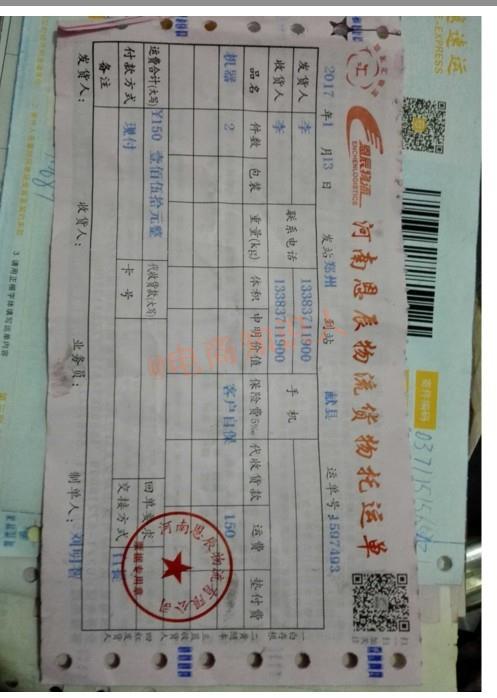 恩辰物流
ENCHENLOGISTICS
河南恩辰物流货物托运单
2017 年1 月13 日 发站 郑州 到站 献县 运单号:1597493
发货人 李 联系电话 13383711900 手机
收货人 李 13383711900
品名 件数 包装 重量(kg) 体积 申明价值 保险费5‰ 代收货款 运费 垫付费
机器 2 客户自保 150
运费合计(大写) ¥150 壹佰伍拾元整 代收货款(大写) 回单要求
付款方式 现付 卡号 交接方式 自提
备注
发货人: 收货人: 业务员: 制单人: 刘明
票据专用章
@电商
-EXPRESS
寄件编码
3.请用正楷字体填写运单内容